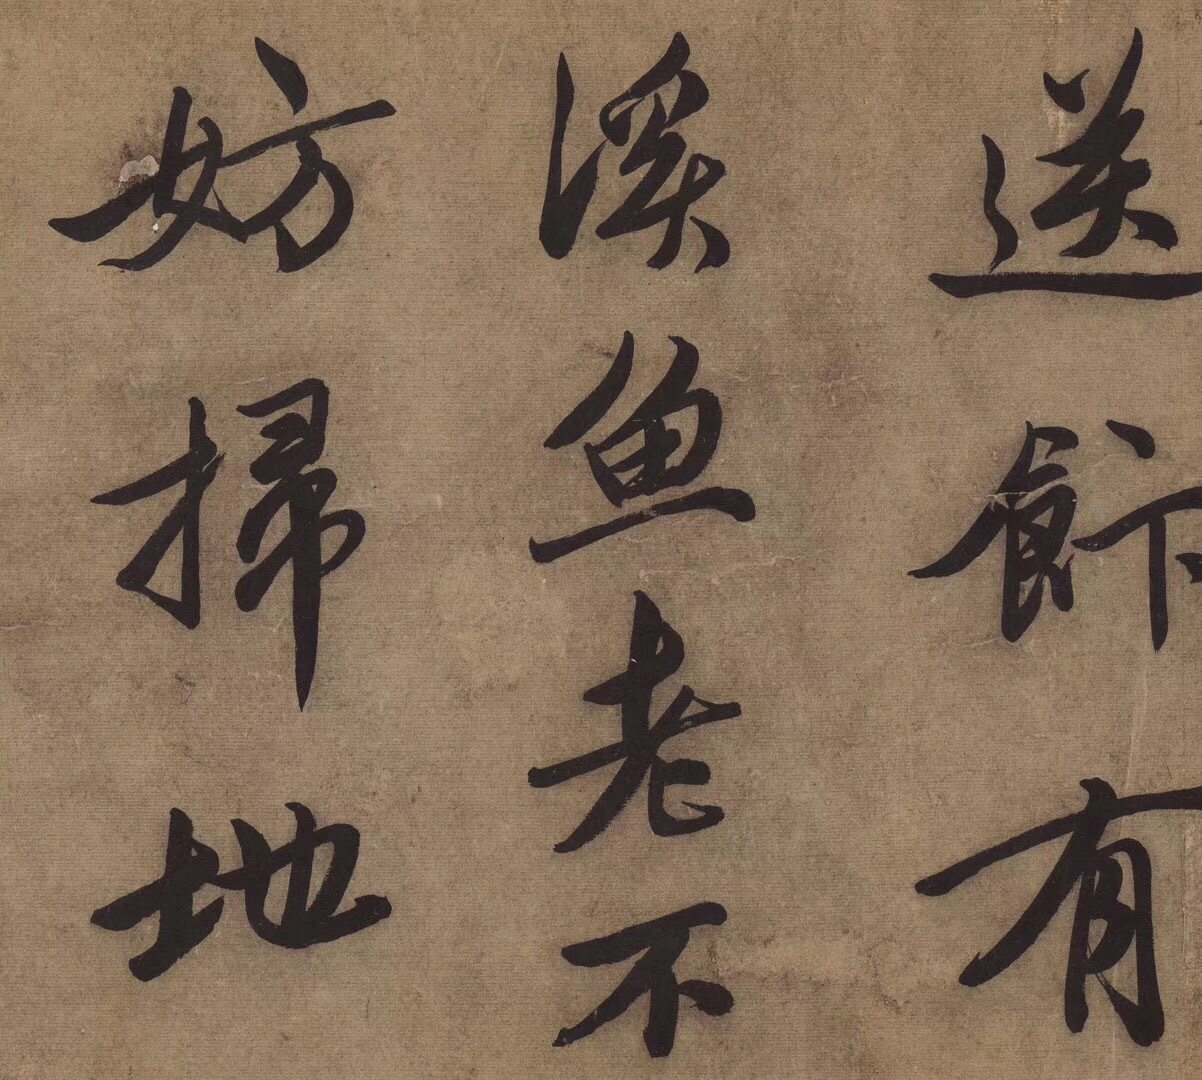 送飰有
溪魚老不
妨掃地